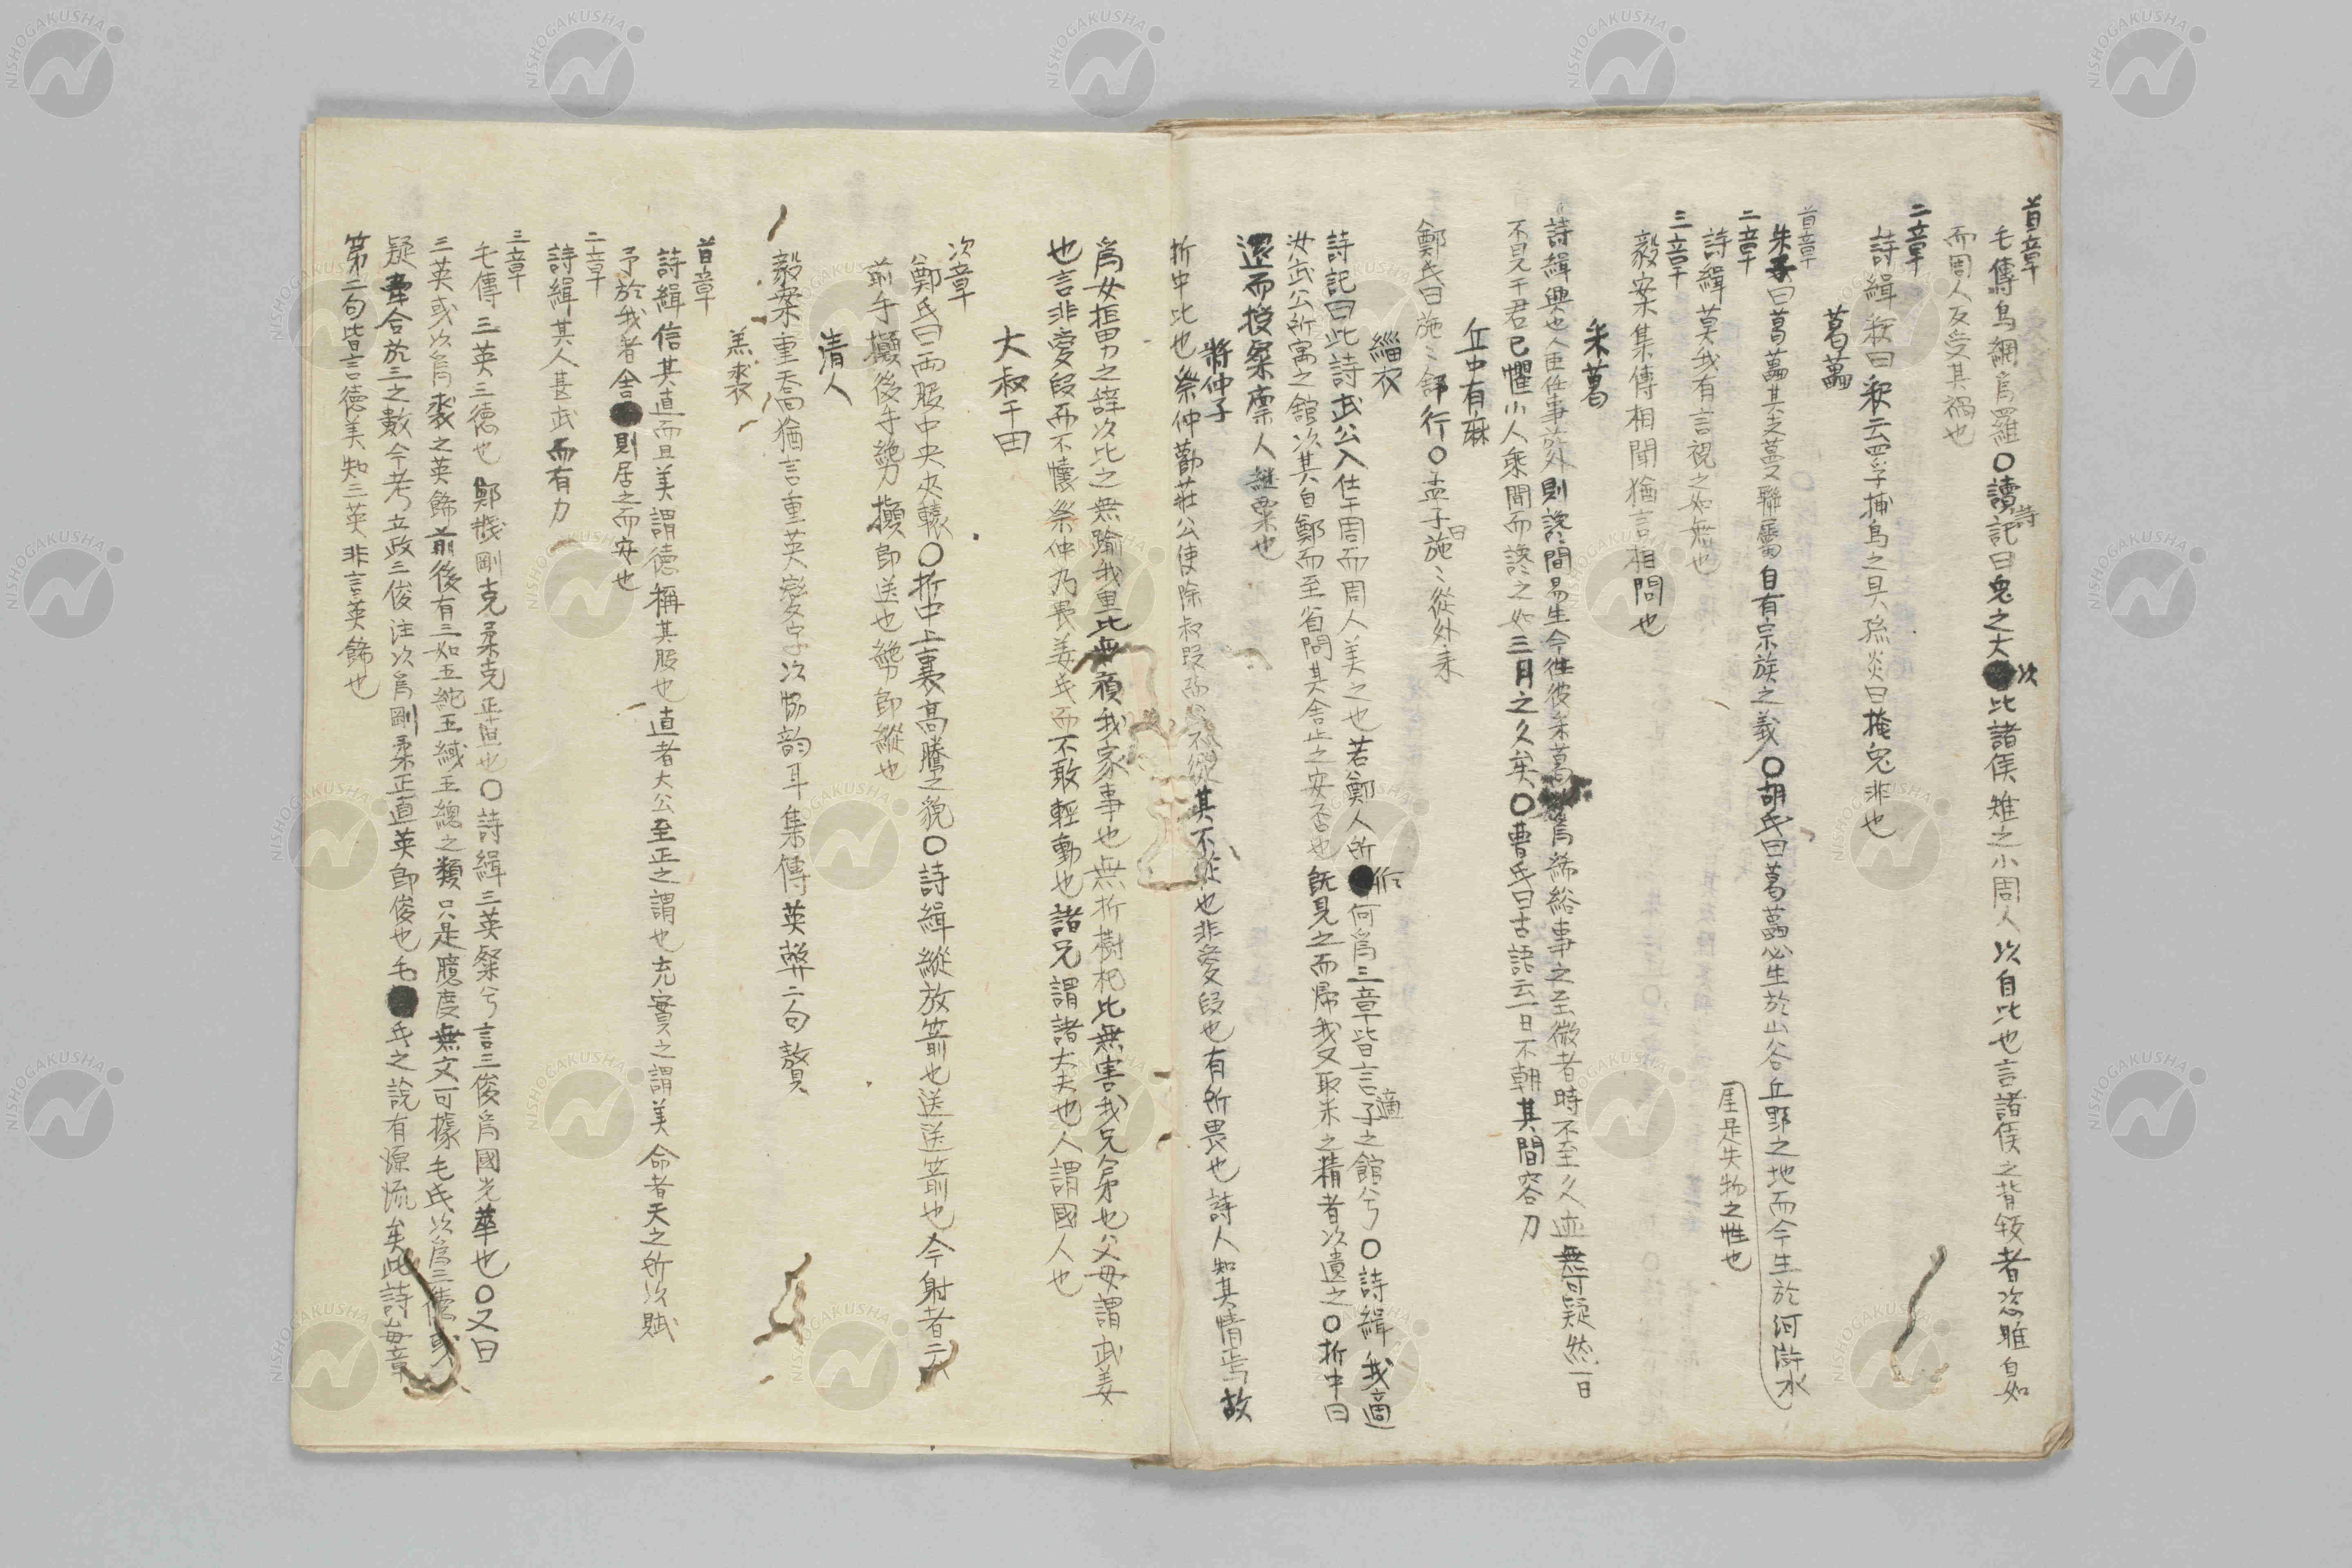 首章
毛傳鳥網爲羅〇讀詩記曰兔之大以比諸侯雉之小周人以自比也言諸侯之背叛者恣睢自如
而周人反受其禍也
二章
詩緝釋曰釈云罦孚捕鳥之具孫炎曰掩兔非也
葛藟
首章
朱子曰葛藟其支蔓聯屬自有宗族之義〇胡氏曰葛藟必生於山谷丘野之地而今生於河滸水
厓是失物之性也
二章
詩緝莫我有言視之如無也
三章
毅案集傳相聞猶言相問也
采葛
詩緝興也人臣任事於外則讒間易生今徃彼采葛爲絺綌事之至微者時不至久迹無可疑然一日
不見于君已懼小人乘間而讒之如三月之久矣〇曹氏曰古語云一日不朝其間容刀
丘中有麻
鄭氏曰施〻舒行〇孟子曰施〻從外来
緇衣
詩記曰此詩武公入仕于周而周人美之也若鄭人所作何爲三章皆言適子之館兮〇詩緝我適
汝武公所寓之館次其自鄭而至省問其舍止之安否也既見之而歸我又取米之精者以遺之〇折中曰
還而授粲廩人継粟也
將仲子
折中比也祭仲勸莊公使除叔段而公不從其不從也非愛段也有所畏也詩人知其情焉故
爲女拒男之辞以比之無踰我里比無預我家事也無折樹杞比無害我兄弟也父母謂武姜
也言非愛段而不懐祭仲乃畏姜氏而不敢輕動也諸兄謂諸大夫也人謂國人也
大叔于田
次章
鄭氏曰兩服中央夾轅〇折中上襄高騰之貌〇詩緝縦放箭也送送箭也今射者云
前手擫後手絶力擫即送也絶即縦也
清人
毅案重喬猶言重英變字以協韵耳集傳英弊二句贅
羔裘
首章
詩緝信其直而且美謂徳稱其服也直者大公至正之謂也充實之謂美命者天之所以賦
予於我者舎則居之而安也
二章
詩緝其人甚武而有力
三章
毛傳三英三徳也鄭牋剛克柔克正直也〇詩緝三英粲兮言三俊爲國光華也〇又曰
三英或以爲裘之英飾前後有三如五紽五緎五總之類只是臆度無文可據毛氏以爲三徳或
疑牽合於三之數今考立政三俊注以爲剛柔正直英即俊也毛氏之説有源流矣此詩毎章
第二句皆言徳美知三英非言英飾也